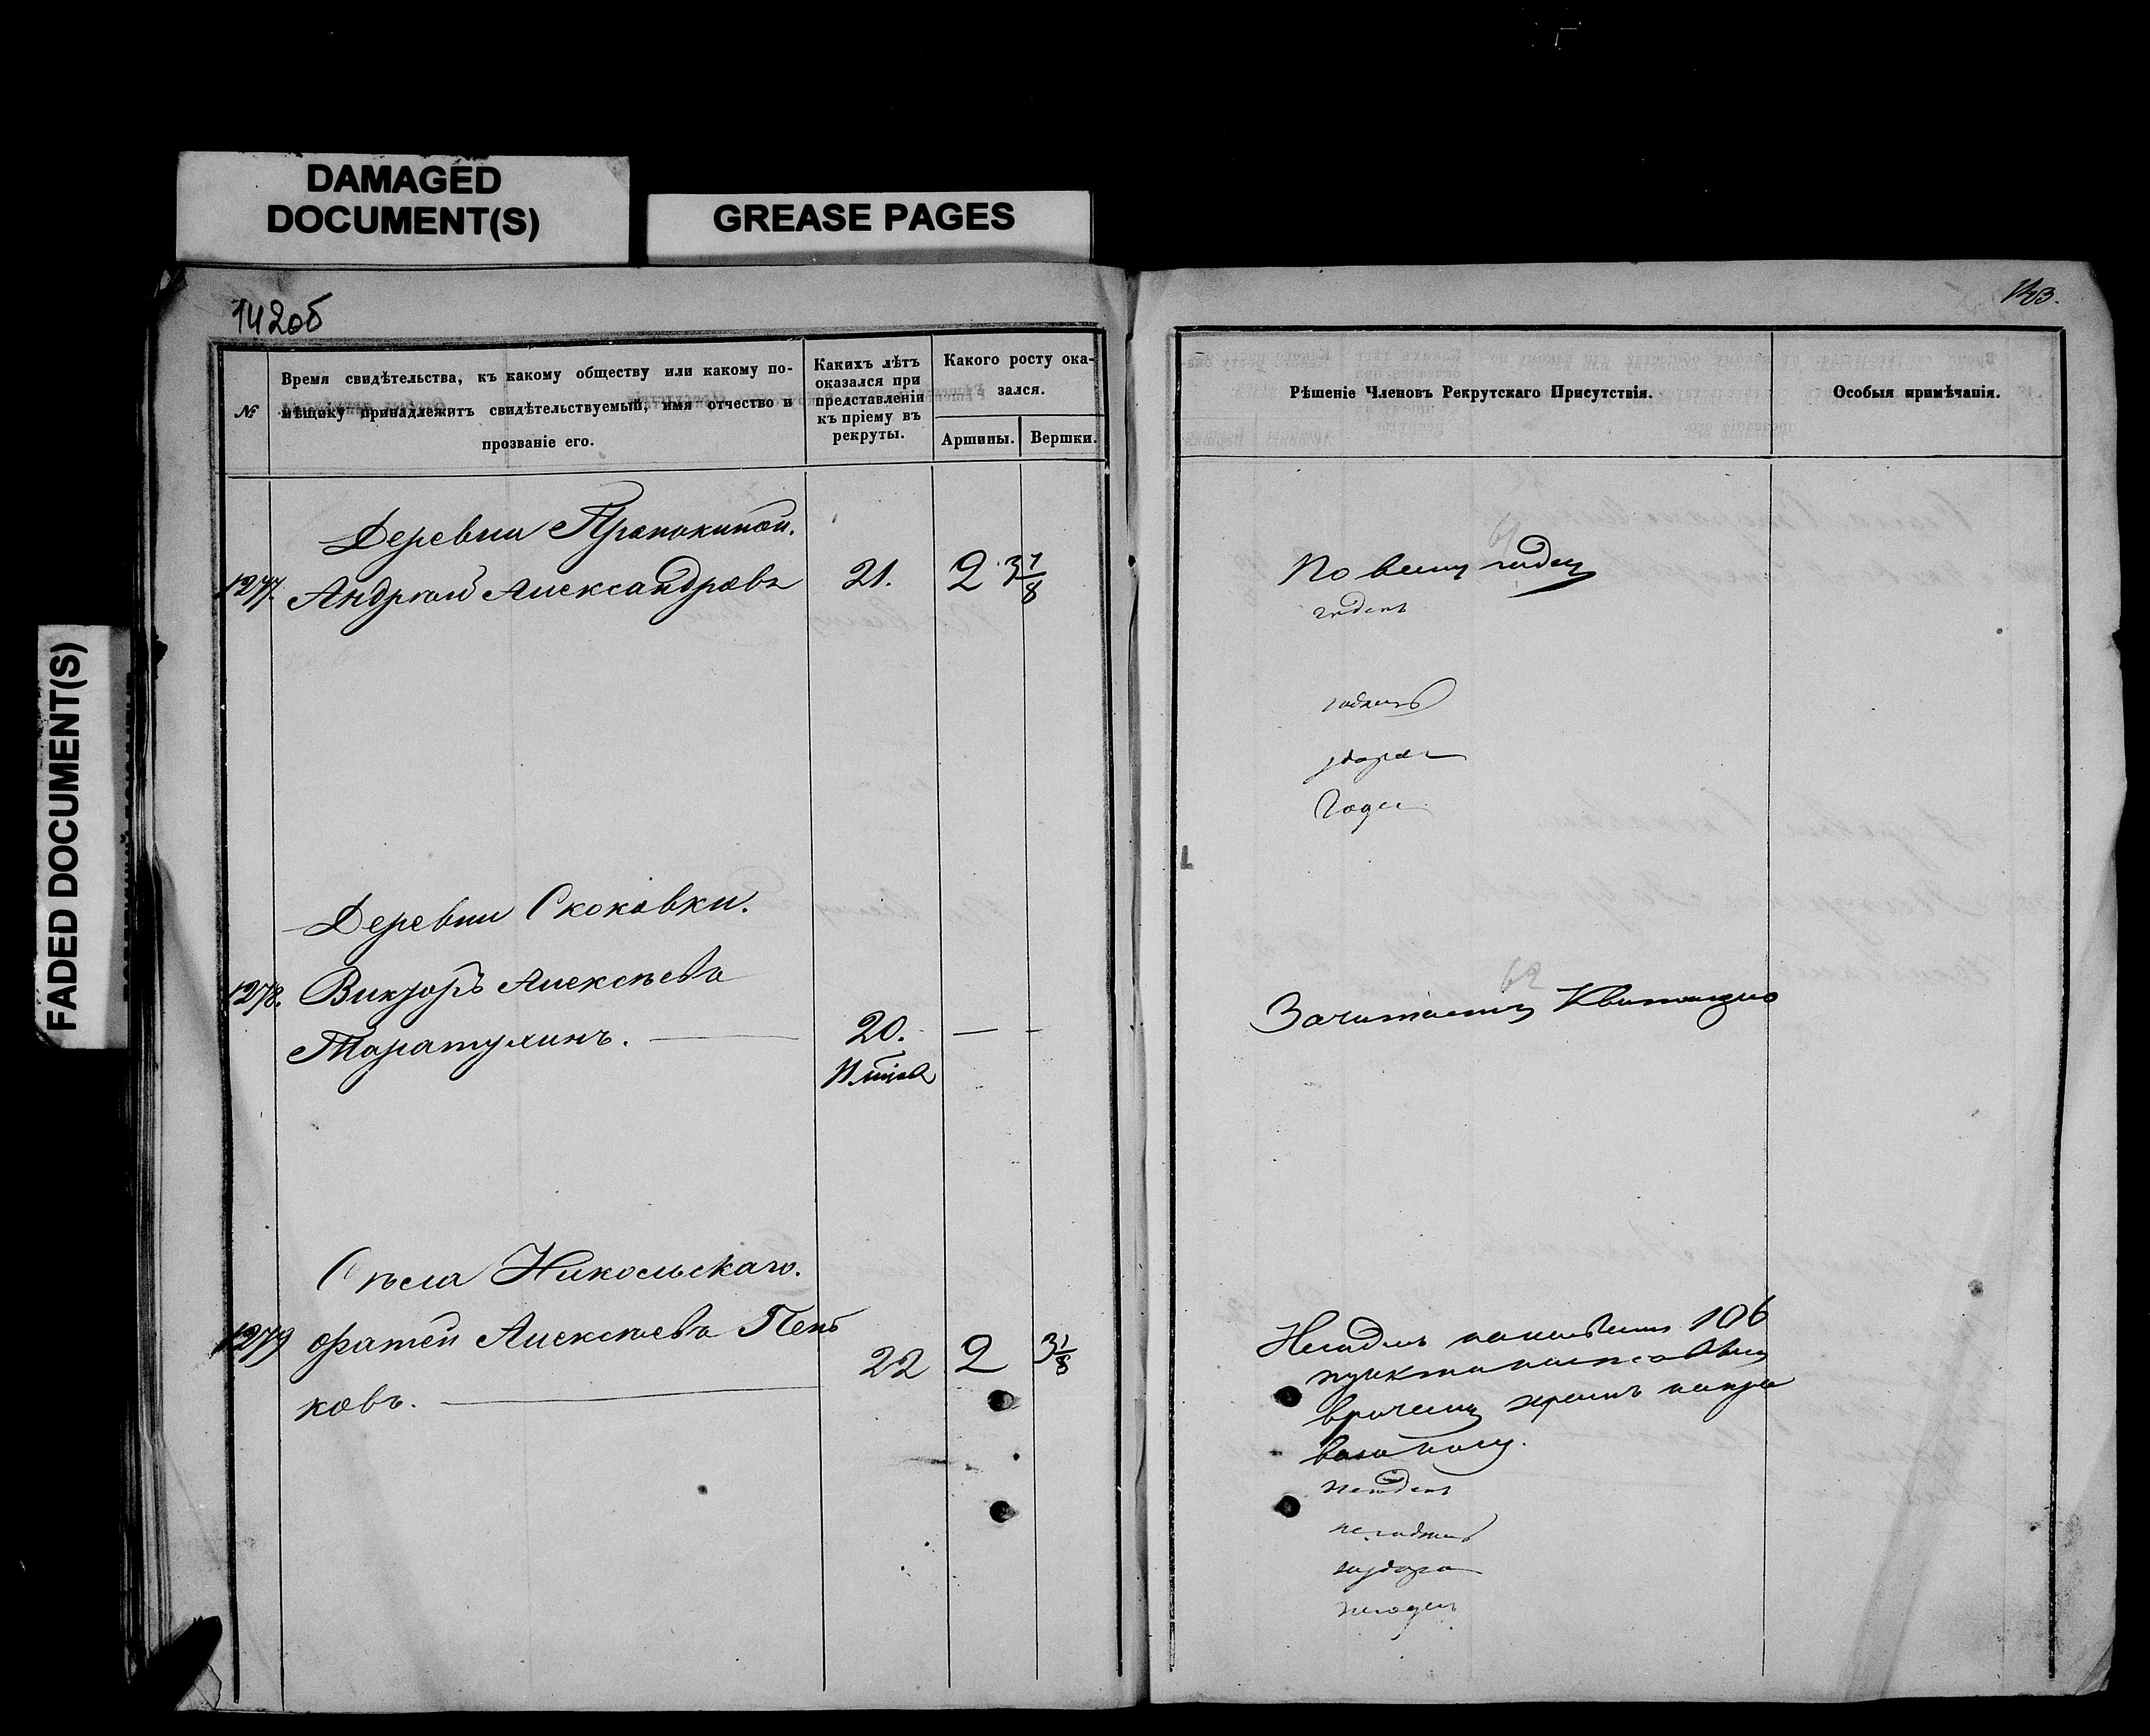 DAMAGED
DOCUMENT(S)
GREASE PAGES
FADED DOCUMENT(S)
142об
№
Время свидѣтельства, къ какому обществу или какому по-
мѣщику принадлежитъ свидѣтельствуемый, имя отчество и
прозваніе его.
Какихъ лѣтъ
оказался при
представленіи
къ пріему въ
рекруты.
Какого росту ока-
зался.
Аршины.
Вершки.
Деревни
1277. Андрей Александровъ 21. 2 3 7/8
Деревни Скоковки.
1278. Викторъ Алексѣевъ
Таратухинъ. — 20. — -
Сѣла Никольскаго.
1279 Фатей Алексѣевъ Пень
ковъ. — 22 2 3 1/8
143.
Рѣшеніе Членовъ Рекрутскаго Присутствія.
Особыя примѣчанія.
61
По всему годен
годенъ
годенъ
здоров
Годен
62
Зачитаетъ Квитанцію
Негоденъ 106
пункта
негоденъ
негоденъ
нездоров
негоденъ